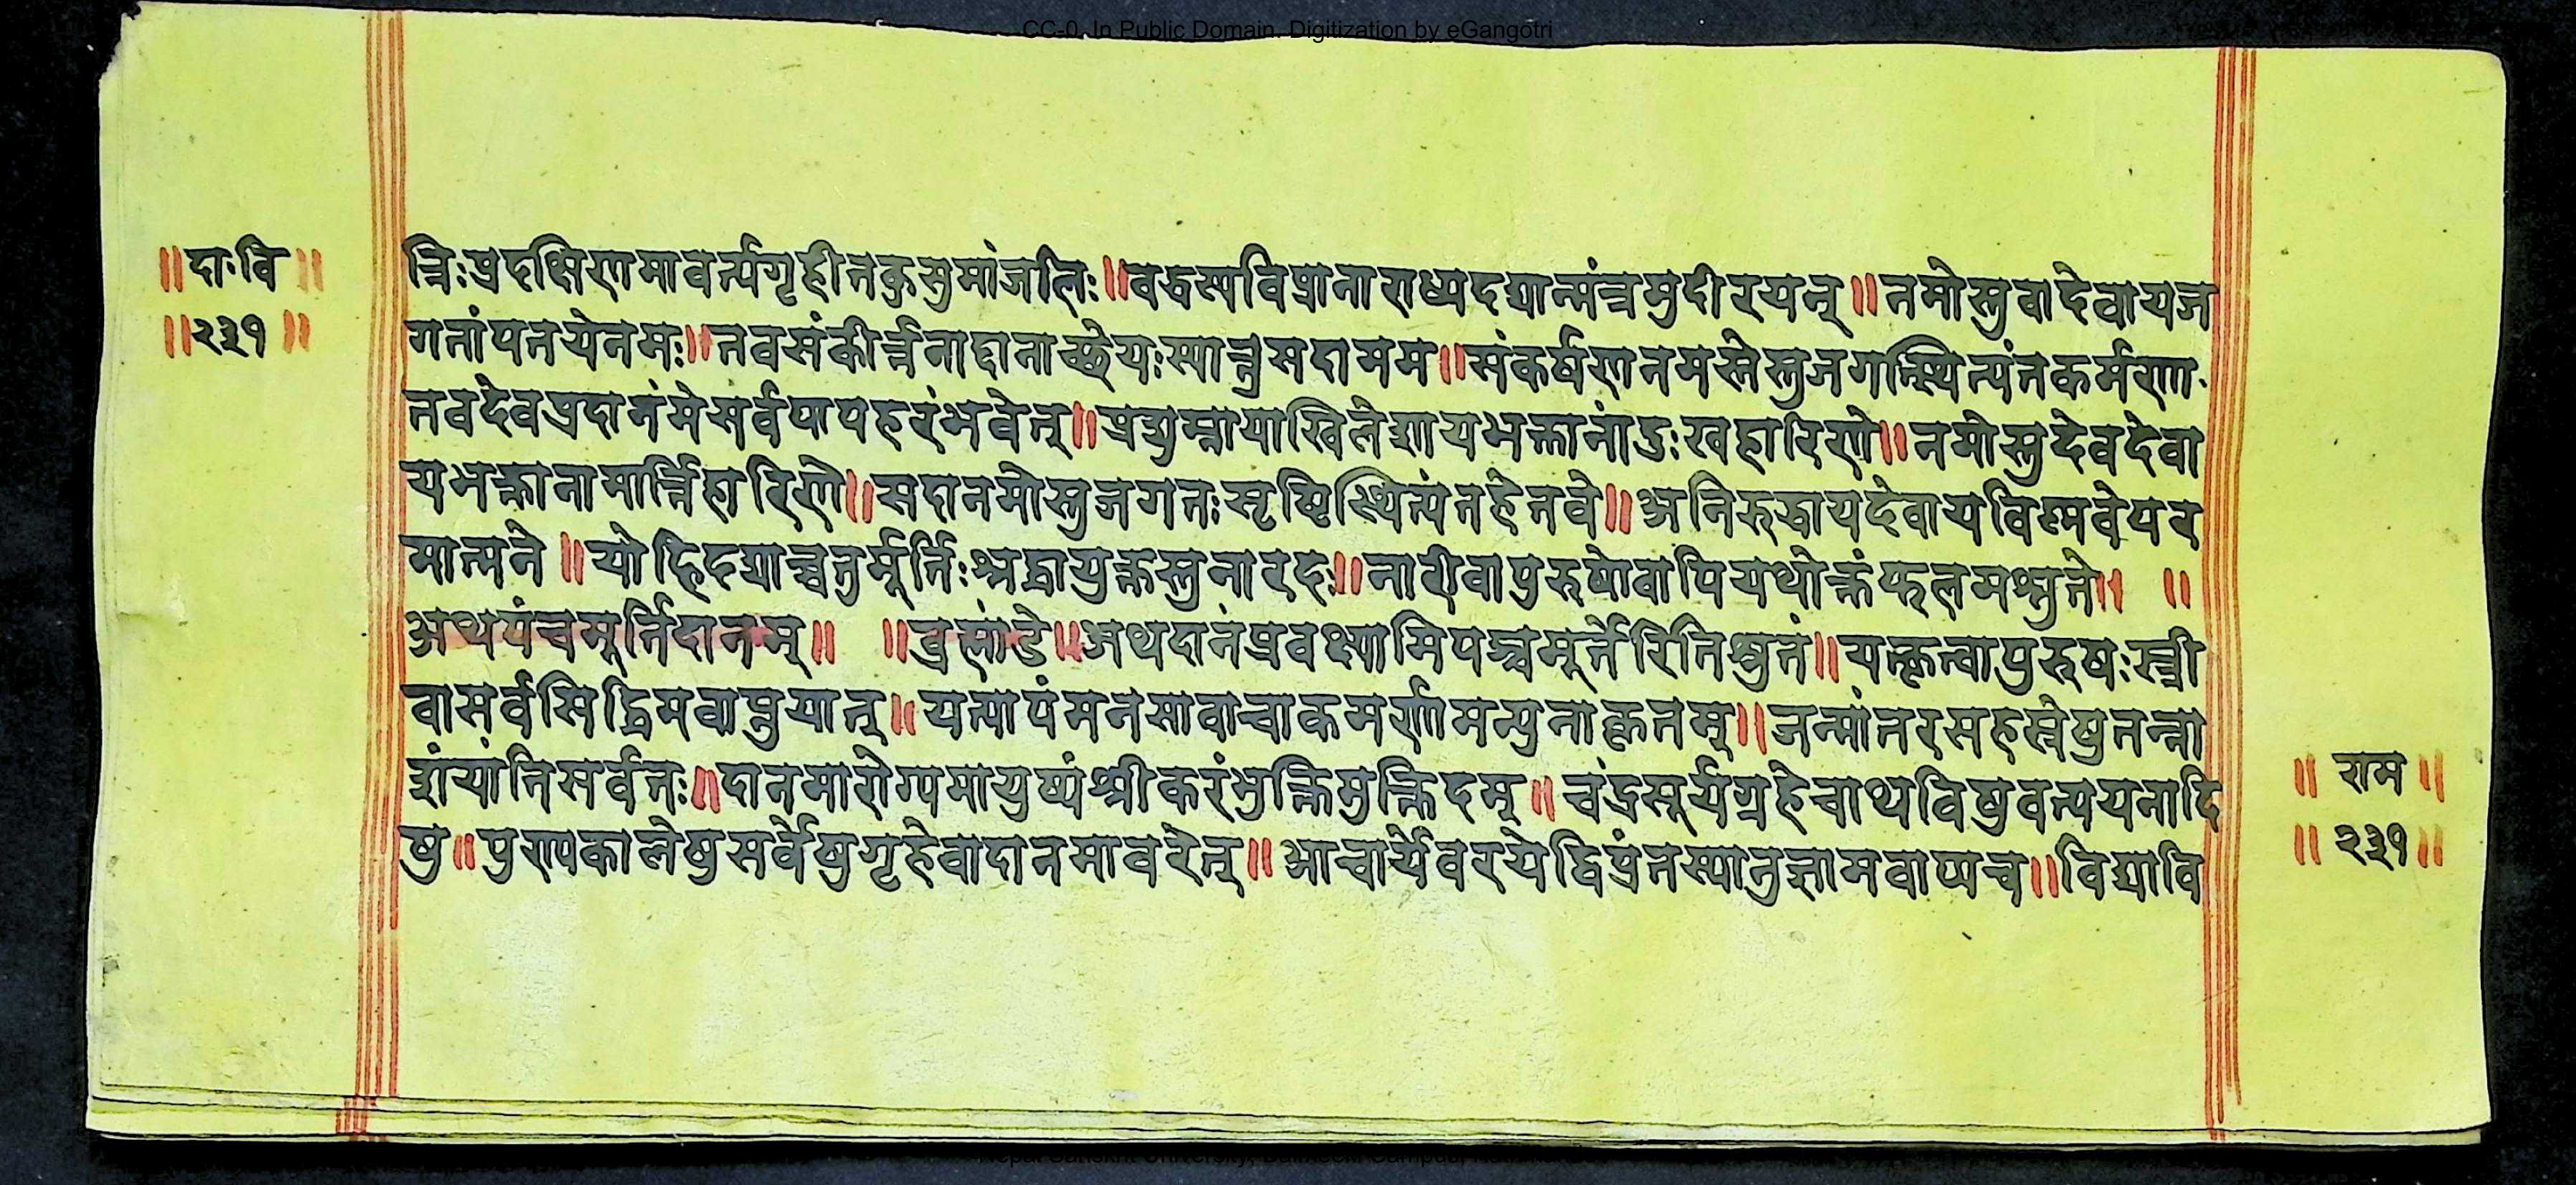 CC-0. In Public Domain. Digitization by eGangotri
॥दा॰वि॥
॥२३१॥
त्रिःप्रदक्षिणमावर्त्यगृहीतकुसुमांजलिः॥वरुस्यविप्रानाराध्यदद्यान्मंत्रमुदीरयन्॥नमोस्तुवादेवायज
गतांपतयेनमः॥तवसंकीर्त्तनाद्दानाच्छ्रेयःस्यान्नुसदामम॥संकर्षणनमस्तेस्तुजगत्स्थित्यंतकर्मणा॰
तवदेवप्रदानंमेसर्वपापहरंभवेत्॥प्रद्युम्नायाखिलेशायभक्तानांदुःखहारिणे॥नमोस्तुदेवदेवा
यभक्तानामार्त्तिहारिणे॥सदानमोस्तुजगतःसृष्टिस्थित्यंतहेतवे॥अनिरुद्धायदेवायविष्णवेपर
मात्मने॥योहिदद्याच्चतुर्मूर्तिःश्रद्धायुक्तस्तुनारदः॥नारीवापुरुषोवापियथोक्तंफलमश्नुते॥ ॥
अथपंचमूर्तिदानम्॥ ॥ब्रह्मांडे॥अथदानंप्रवक्ष्यामिपञ्चमूर्तेरितिश्रुतं॥यत्कृत्वापुरुषःस्त्री
वासर्वसिद्धिमवाप्नुयात्॥यत्पापंमनसावाचाकमर्णामत्युनाकृतम्॥जन्मांतरसहस्रेषुतन्ना
शंयांतिसर्वतः॥दानमारोग्यमायुष्यंश्रीकरंभुक्तिमुक्तिदम्॥चंद्रसूर्यग्रहेचाथविषुवत्ययनादि
षु॥पुण्यकालेषुसर्वेषुगृहेवादानमावरेत्॥आचार्यंवरयेद्विप्रंतस्यानुज्ञामवाप्यच॥विद्यावि
॥ राम ॥
॥ २३१॥